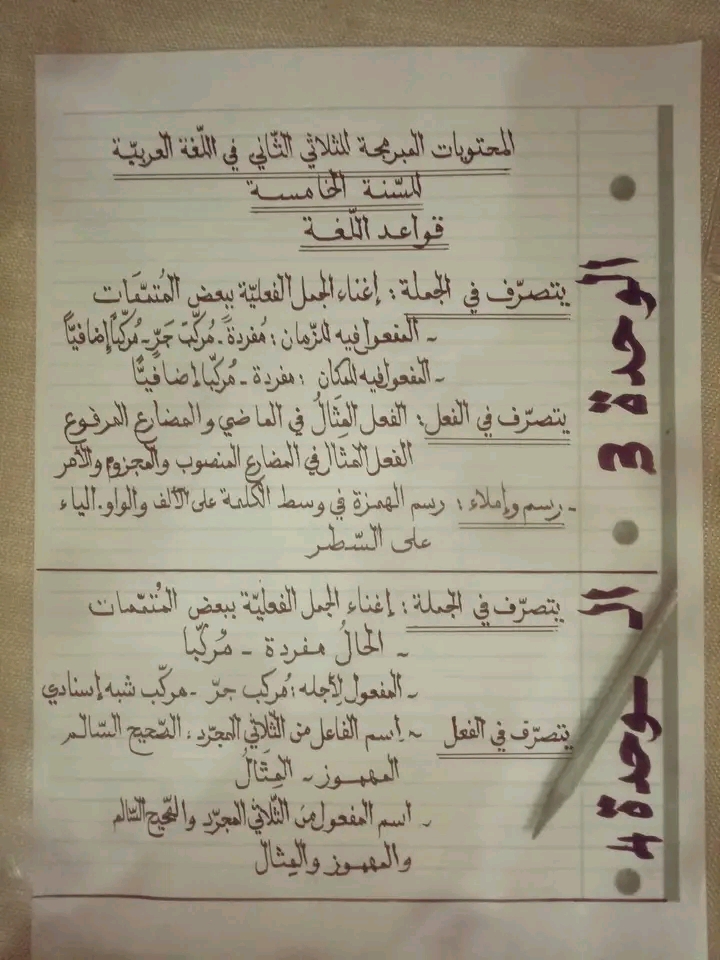 المحتويات المبرمجة للثلاثي الثّاني في اللّغة العربيّة
للسّنة الخامسة
قواعد اللّغة
الوحدة 3
يتصرّف في الجملة : إغناء الجمل الفعليّة ببعض المُتمّمَات
- المفعول فيه للزّمان : مُفردةً - مُركّبَ جَرّ - مُركّبًا إضافيًّا
- المفعول فيه للمكان : مفردة - مُركّبا إضافيًّا
يتصرّف في الفعل : الفعل المِثَالُ في الماضي والمضارع المرفوع
الفعل المثال في المضارع المنصوب والمجزوم والأمر
- رسم وإملاء : رسم الهمزة في وسط الكلمة على الألف والواو. الياء
على السّطر
الوحدة 4
يتصرّف في الجملة : إغناء الجمل الفعليّة ببعض المُتمّمات
- الحالُ مفردة - مُركّبا
- المفعول لأجله : مُركب جرّ - مركّب شبه إسنادي
يتصرّف في الفعل - اسم الفاعل من الثّلاثي المجرّد : الصّحيح السّالم
المهموز - المِثَالُ
- اسم المفعول منَ الثّلاثي المجرّد والصّحيح السّالم
والمهموز والمِثال